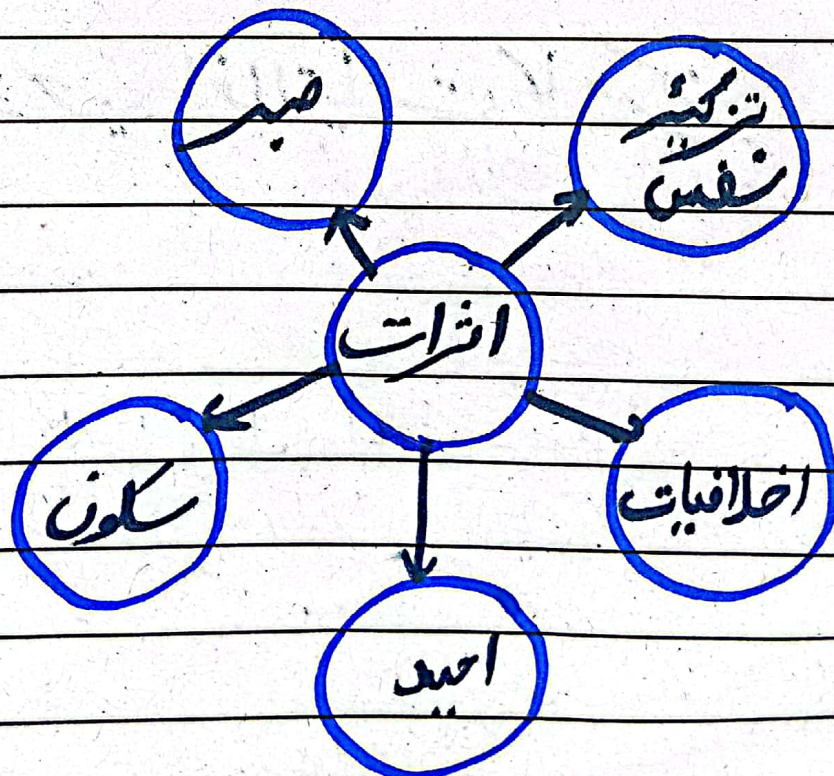 صبر
تزکیۂ
نفس
اثرات
سکون
اخلاقیات
امید